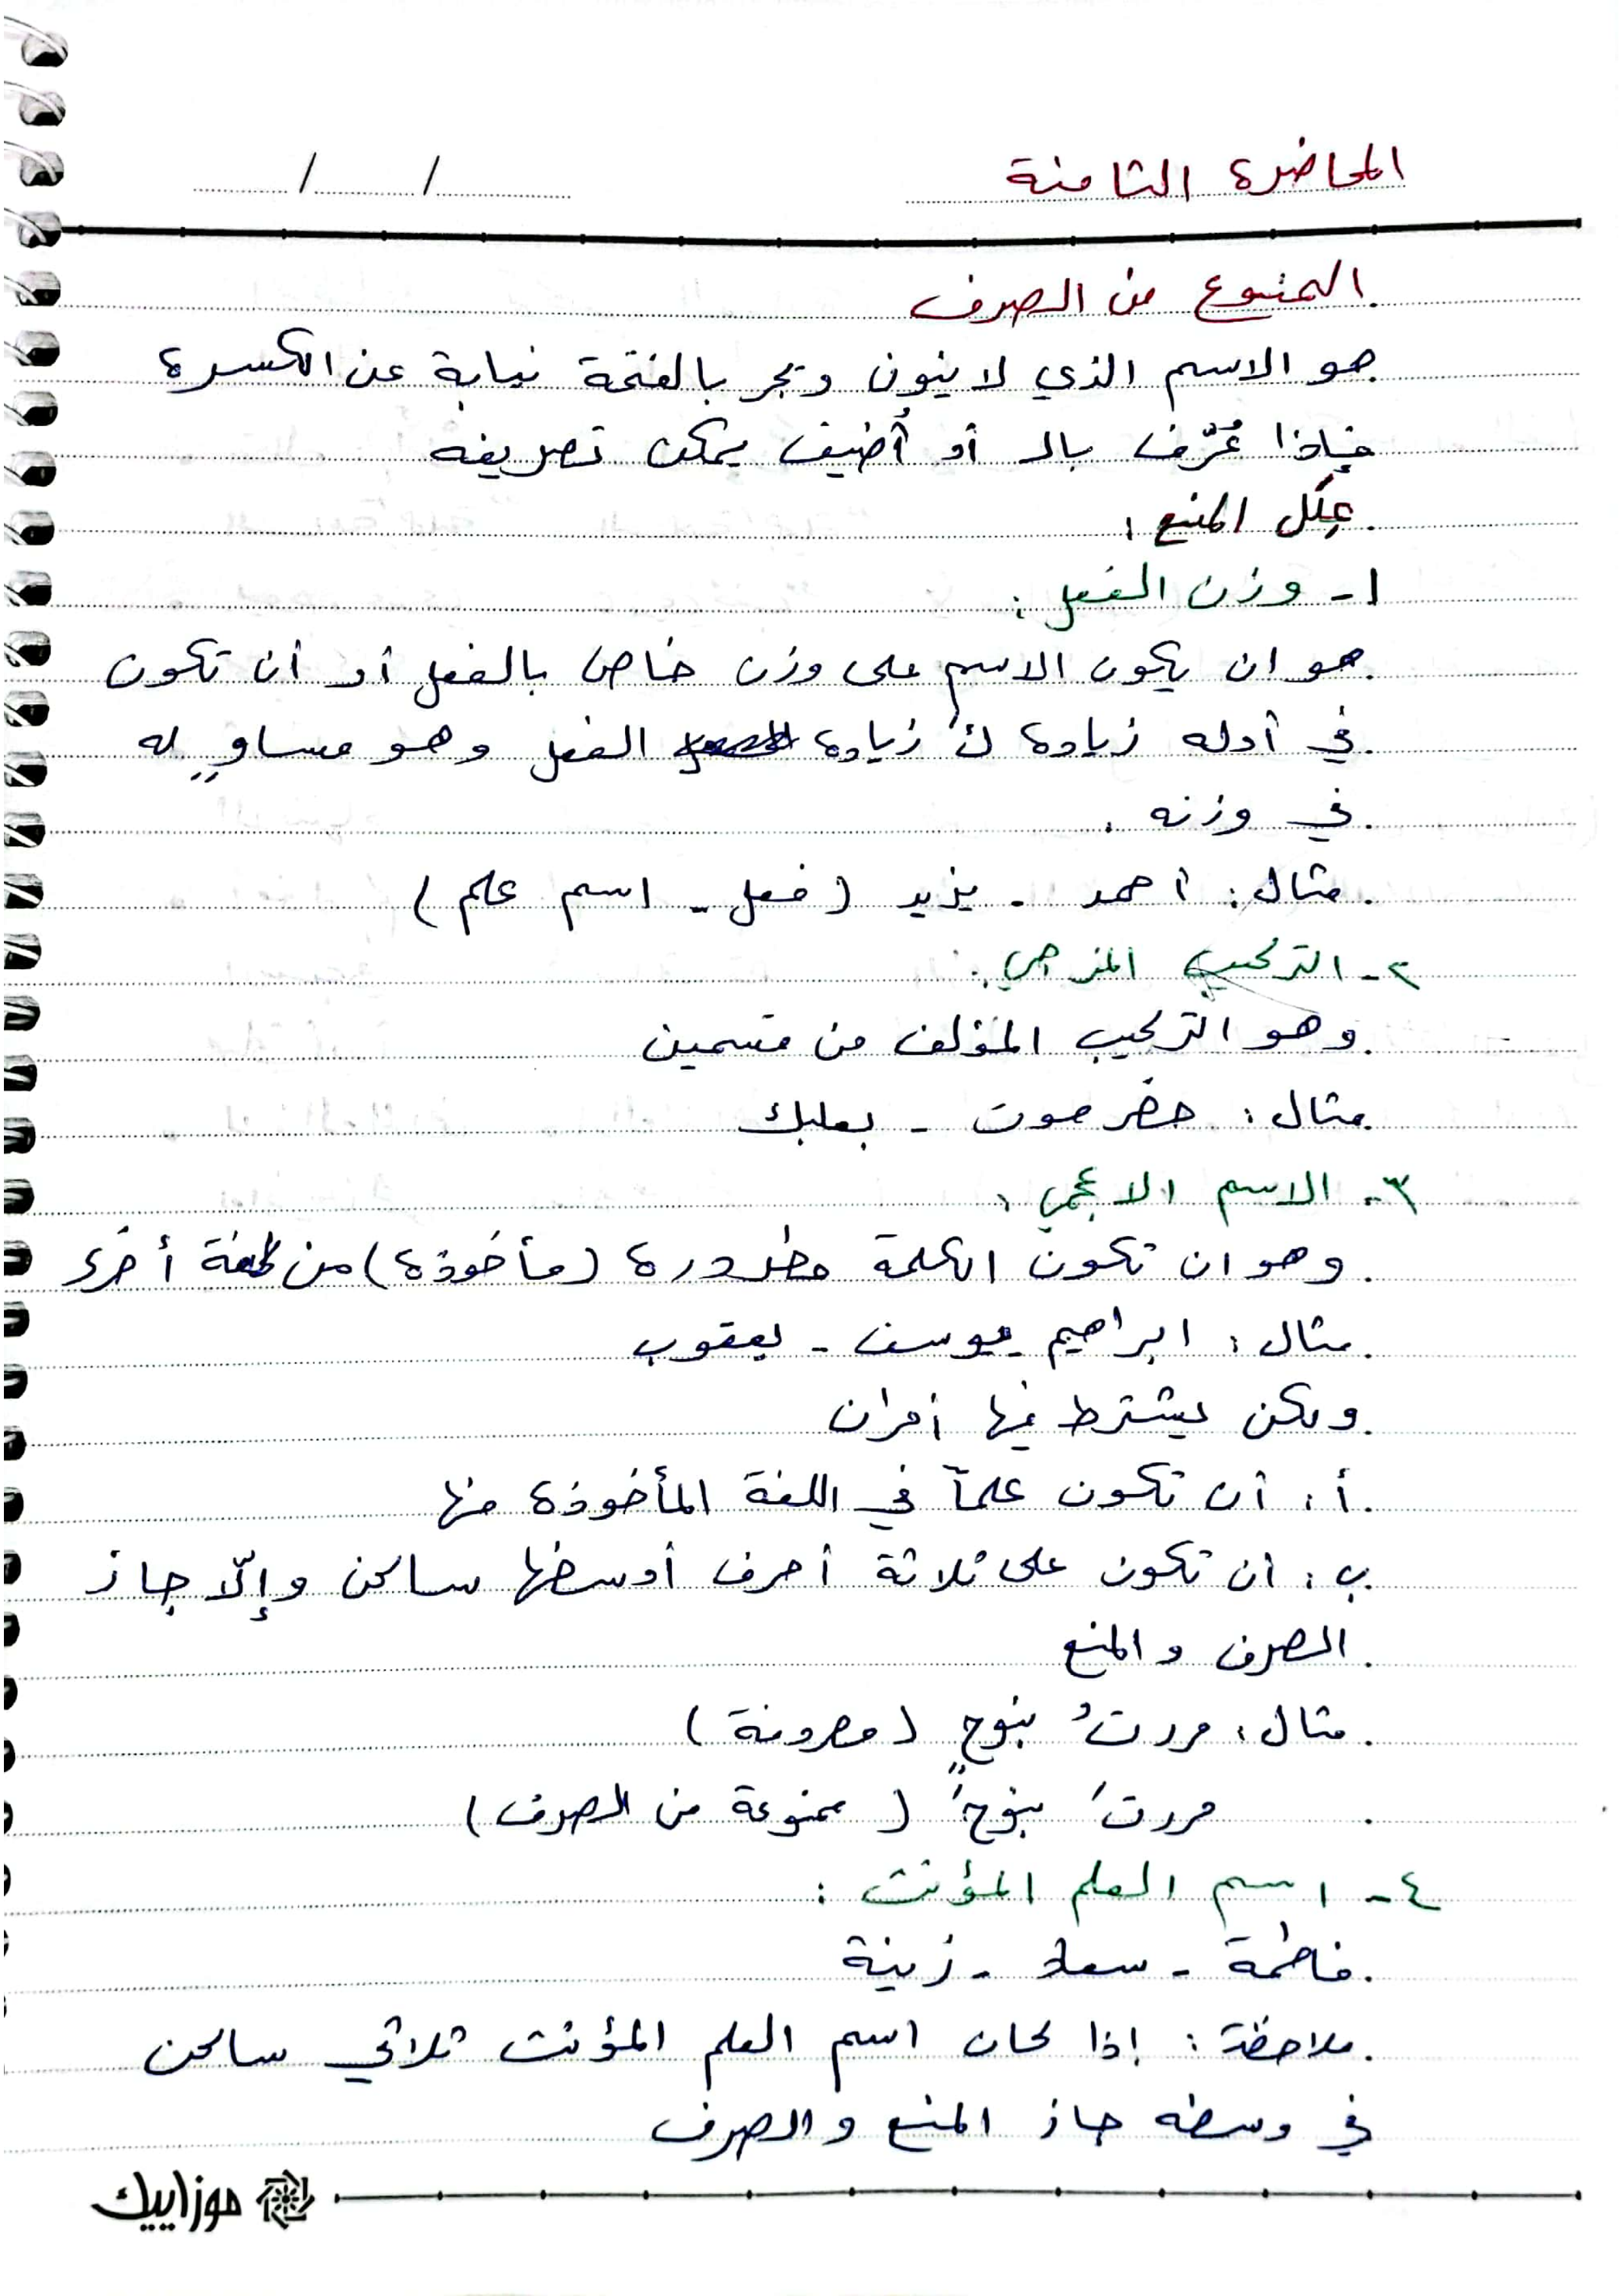 المحاضرة الثامنة
/ /
الممنوع من الصرف
هو الاسم الذي لا ينون ويجر بالفتحة نيابة عن الكسرة
فإذا عُرّف بال أو أُضيف يمكن تصريفه
عِلَل المنع :
١- وزن الفعل :
هو ان يكون الاسم على وزن خاص بالفعل أو أن تكون
في أوله زيادة كَ زيادة الفعل وهو مساوٍ له
في وزنه .
مثال : أحمد - يزيد ( فعل - اسم علم )
٢- التركيب المزجي :
وهو التركيب المؤلف من قسمين
مثال : حضرموت - بعلبك
٣- الاسم الاعجمي :
وهو ان تكون الكلمة (مأخوذة) من لغة أخرى
مثال : ابراهيم - يوسف - يعقوب
ولكن يشترط فيها أمران
أ : أن تكون علماً في اللغة المأخوذة منها
ب : أن تكون على ثلاثة أحرف أوسطها ساكن وإلّا جاز
الصرف والمنع
مثال : مررتُ بنوحٍ ( مصروفة )
مررتُ بنوحَ ( ممنوعة من الصرف )
٤- اسم العلم المؤنث :
فاطمة - سعاد - زينة
ملاحظة : إذا كان اسم العلم المؤنث ثلاثي ساكن
في وسطه جاز المنع والصرف
موزاييك